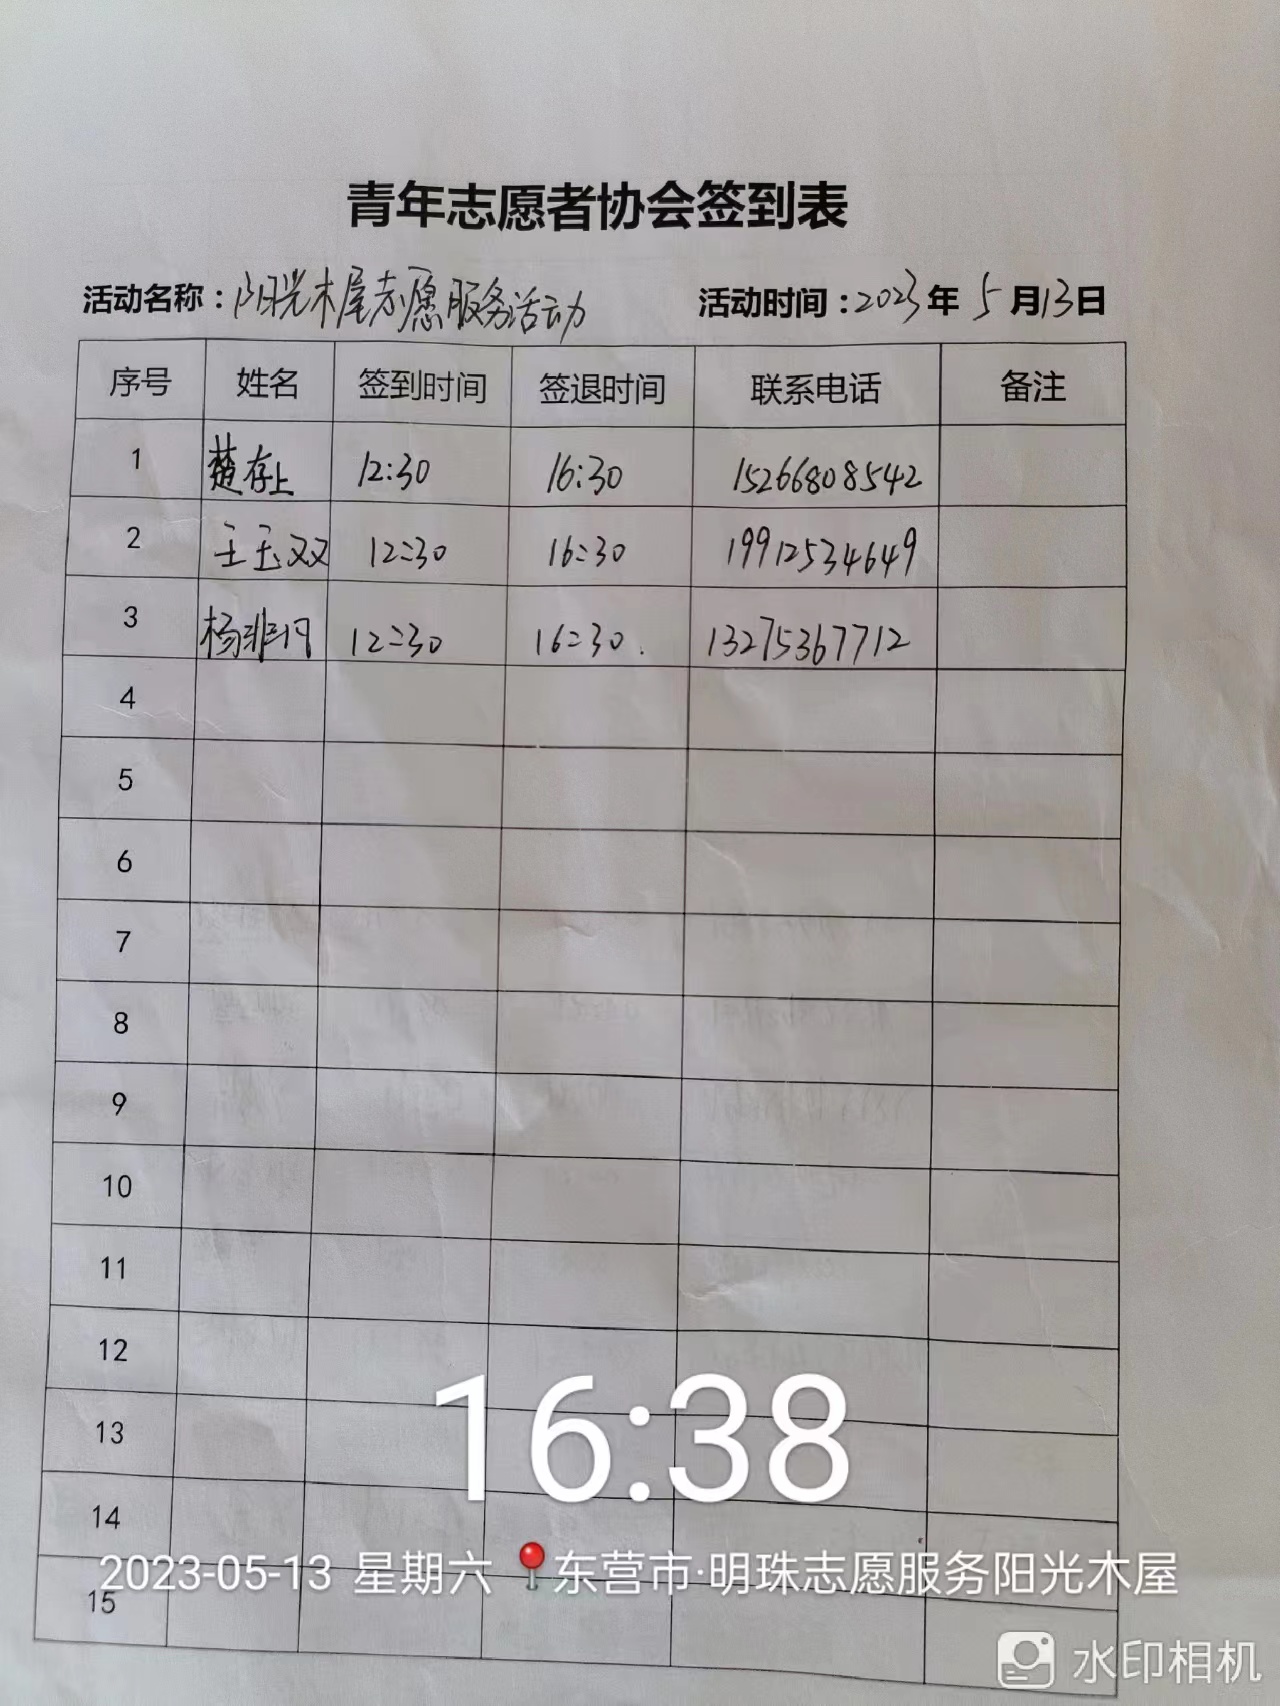 青年志愿者协会签到表
活动名称：阳光木屋志愿服务活动 活动时间：2023年5月13日
序号 姓名 签到时间 签退时间 联系电话 备注
1 楚存上 12:30 16:30 15266808542
2 王玉双 12:30 16:30 19912534649
3 12:30 16:30. 13275367712
4
5
6
7
8
9
10
11
12
13
14
15
16:38
2023-05-13 星期六 东营市·明珠志愿服务阳光木屋
水印相机